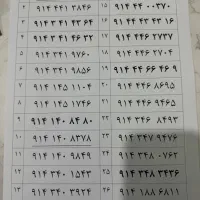 ۲ ۹۱۴ ۴۴۱ ۳۸۴۶ ۱۵ ۹۱۴ ۴۴ ۰۰۳۷۰
۳ ۹۱۴ ۴ ۴۱ ۴۳ ۶۴ ۱۶ ۹۱۴ ۴۴ ۴۳ ۴ ۱۶
۴ ۹۱۴ ۳ ۴۱ ۴۶ ۳۲ ۱۷ ۹۱۴ ۴۴۶ ۲۷۳۷
۵ ۹۱۴ ۳۴۱ ۹۷۶۰ ۱۸ ۹۱۴ ۴۴۶ ۲۷۰۴
۶ ۹۱۴ ۳۴۱ ۹۸۵۶ ۱۹ ۹۱۴ ۴۴ ۶۶ ۴۶ ۹
۷ ۹۱۴ ۱۴۵ ۱۱۰۴ ۲۰ ۹۱۴ ۴۴۶ ۸۶۹۵
۸ ۹۱۴ ۱۴۵ ۱۷۴۶ ۲۱ ۹۱۴ ۴۴۶ ۹۴۶۵
۹ ۹۱۴ ۱۴۰ ۸۴ ۸۰ ۲۲ ۹۱۴ ۳۴۶ ۸۴۹۳
۱۰ ۹۱۴ ۱۴۰ ۸۳۷۸ ۲۳ ۹۱۴ ۳۴۷ ۹۴۷۶
۱۱ ۹۱۴ ۱۴۰ ۹۸۴۹ ۲۴ ۹۱۴ ۳۴۸ ۰۷۶۲
۱۲ ۹۱۴ ۳۴۰ ۱۵۴۳ ۲۵ ۹۱۴ ۳۴۸ ۳۴۳۶
۱۳ ۹۱۴ ۳۴۰ ۳۹۲۴ ۲۶ ۹۱۴ ۱۸۸ ۶۸۱۱